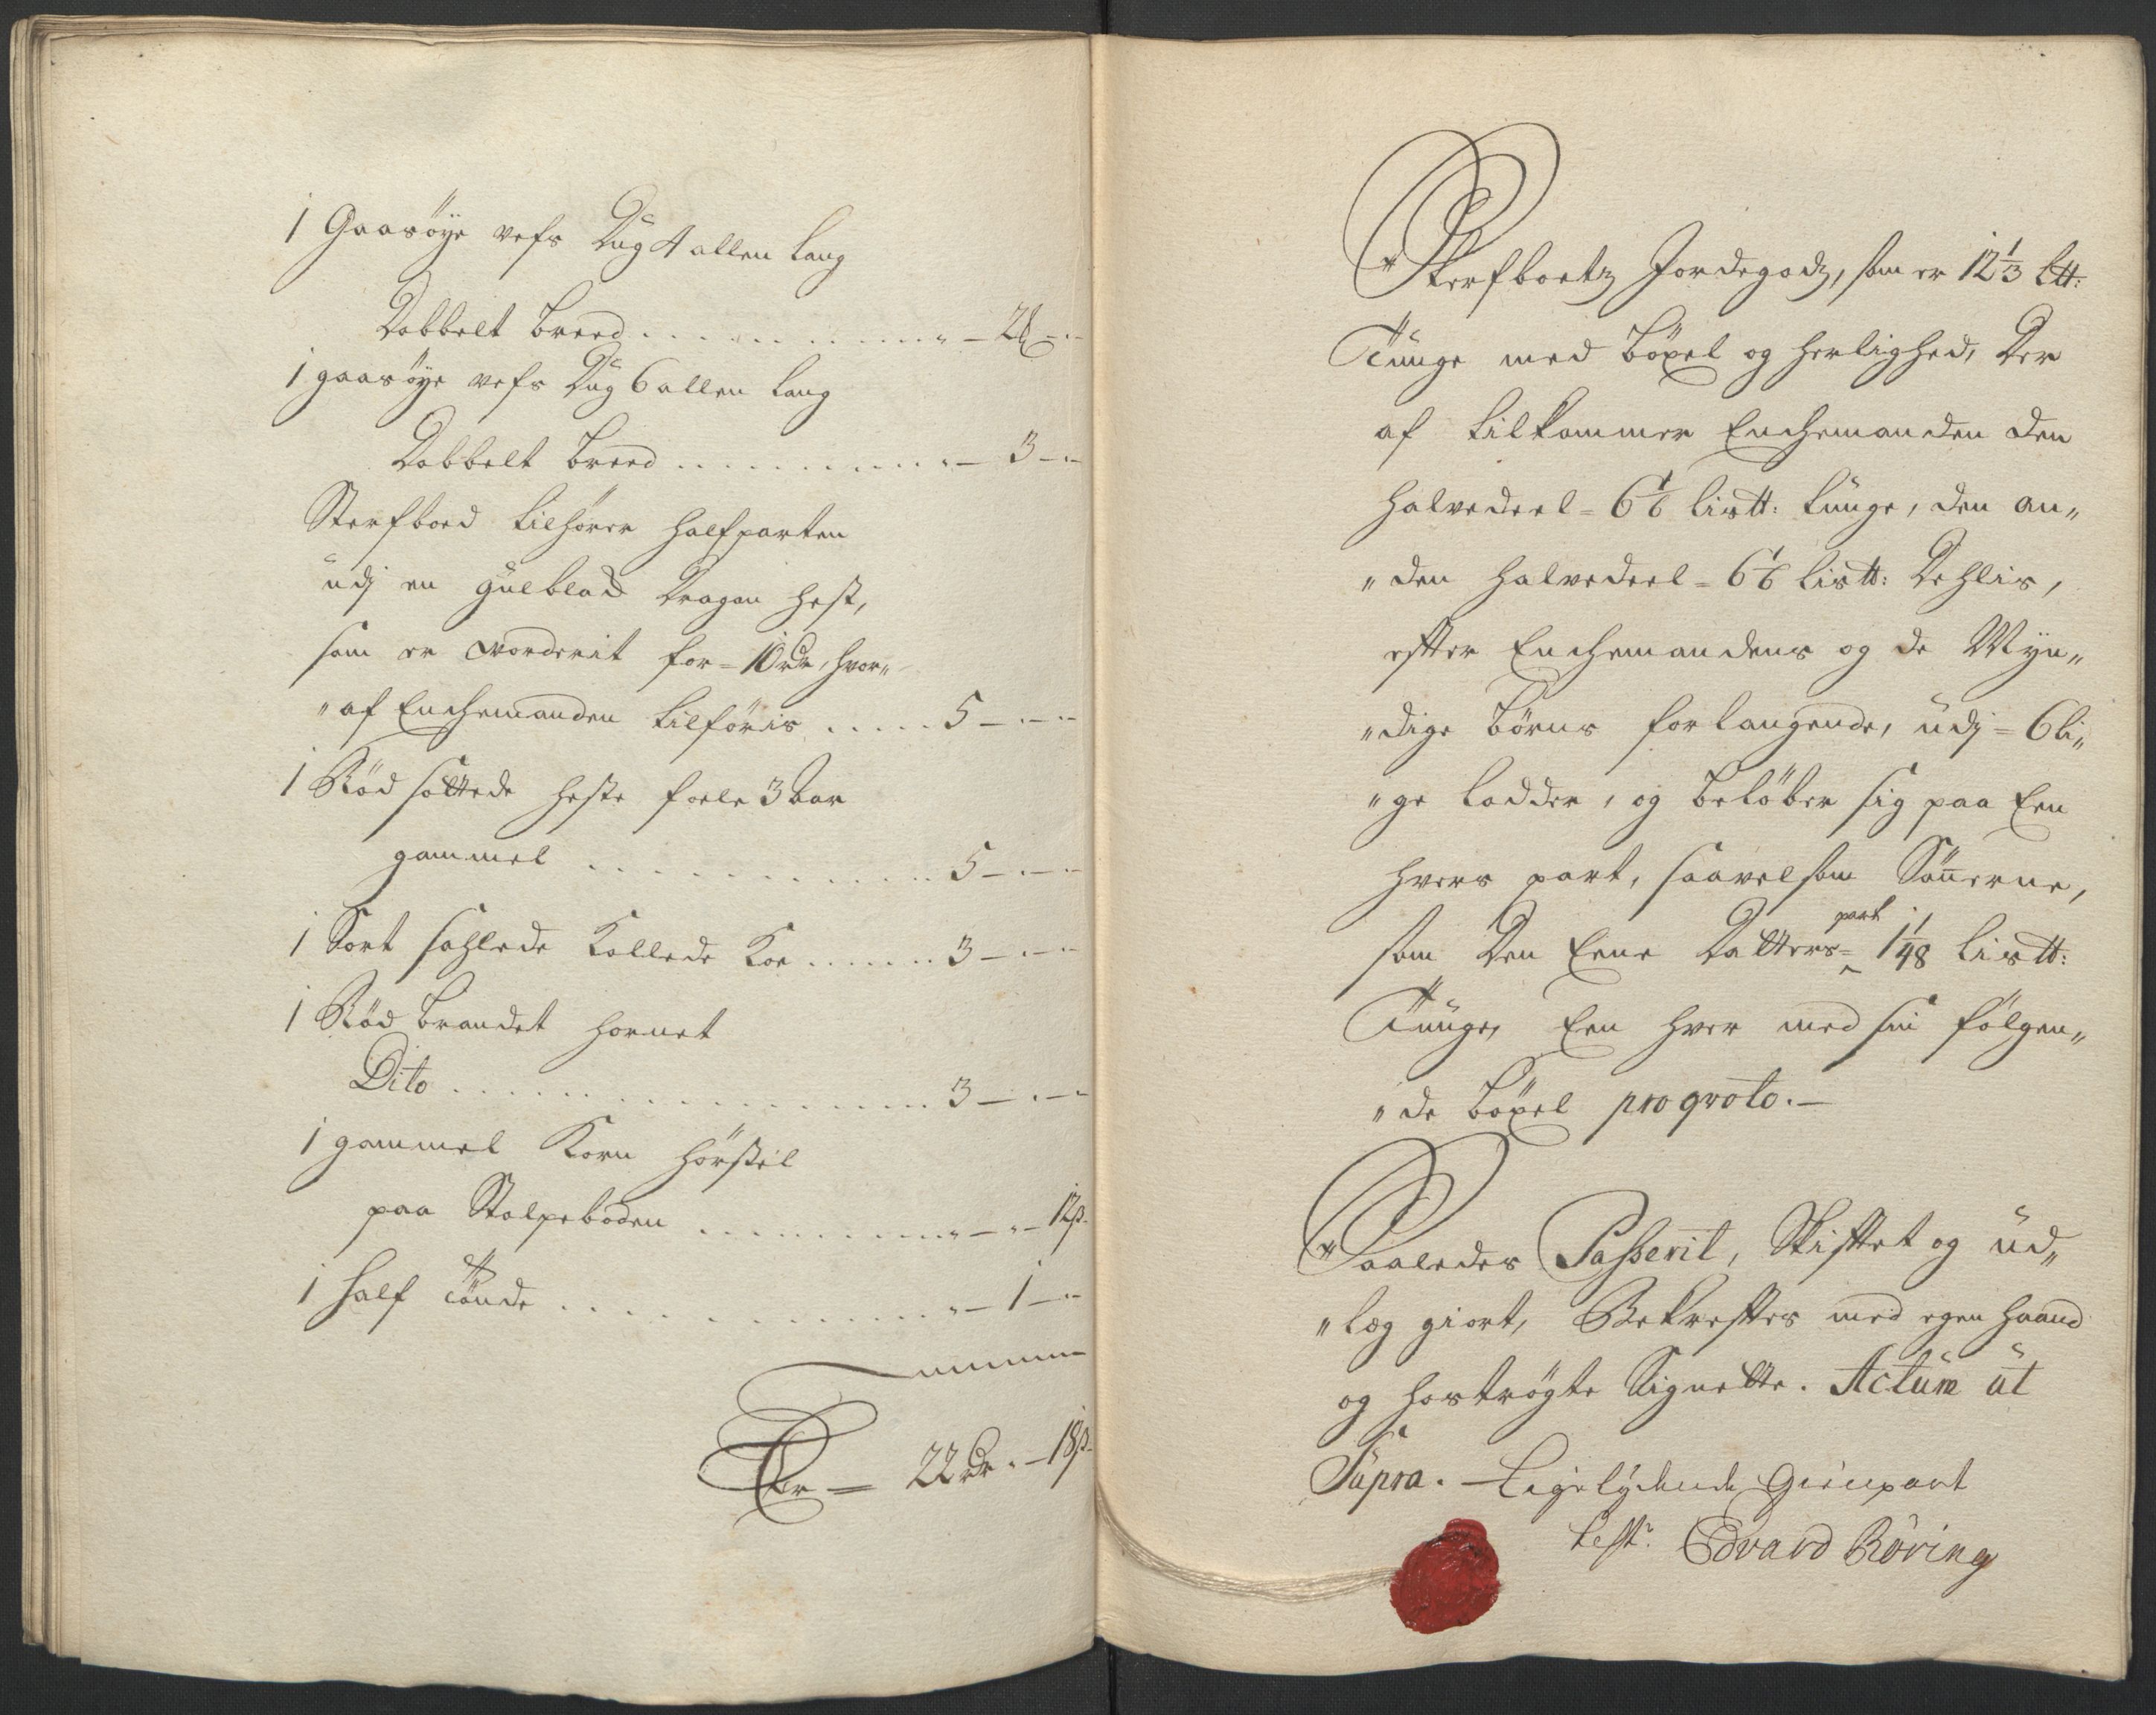 1 Gaasöÿe vefs Dug 4 allen lang
Dobbelt breed . . . . . . . . . . „ – 2 – . –
1 gaasöÿe vefs Dug 6 allen lang
Dobbelt breed . . . . . . . . . . – 3 – . –
Sterfboed tilhörer halfparten
udj en gulblad Dragon hest,
som er vorderit for = 10 rdr, hvor„
„ af Enchemanden tilföris . . . . . 5 – . – . –
1 Röd sottede heste fole 3 aar
gammel . . . . . . . . . . . . . 5 – . – . –
1 Sort sahlede kollede Koe . . . . . . 3 – . – . –
1 Röd brandet hornet
Dito . . . . . . . . . . . . . . . . . 3 – . – . –
1 gammel Korn hörstel
paa Stolpeboden . . . . . . . . . . „ – . – 12 β.
1 half tönde . . . . . . . . . . . . . „ – 1 – . –
Er = 22 rdr. – 18 β.
Sterfboetz Jordegodz, som er 12 1/3 L℔:
Tunge med böxel og herlighed, Der
af tilkommer Enchemanden den
halvedeel = 6 1/6 lis℔: tunge, den an„
„ den halvedeel = 6 1/6 Lis℔: Dehlis,
efter Enchemandens og de Myn„
„ dige börns forlangende, udj = 6 li„
„ ge lodder, og belöber sig paa Een
hvers part, saavelsom Sönerne,
som Den Eene Datters = part 1 1/48 Lis℔:
Tunge, Een hver med sin fölgen„
„ de böxel pro qvoto. –
Saaledes Passerit, Skiftet og ud„
„ læg giort, Bekreftes med egen haand
og hoströgte Signette. Actum ut
Supra. – Ligelÿdende Gienpart
test: Edvard Röring